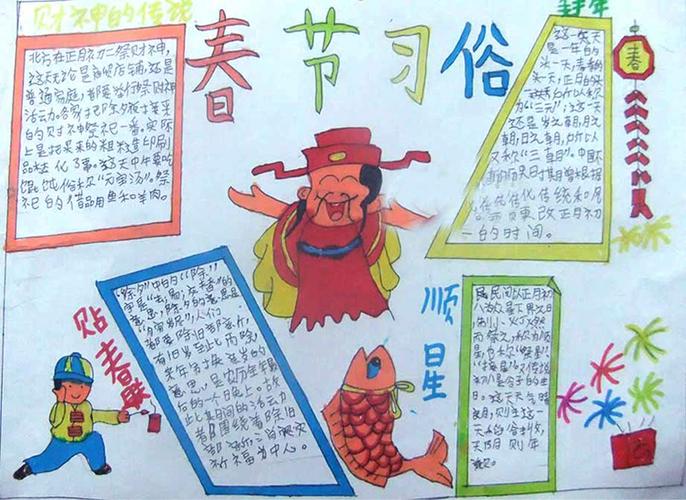 财神的传说
春节习俗
北方在正月初二祭财神,
这天无论是商贸店铺,还是
普通家庭,都要举行祭财神
活动。各家把除夕夜接来
的财神祭祀一番。实际
上是把买来的粗糙印刷
品焚化了事。这天中午要吃
馄饨俗称"元宝汤"。祭
祀的供品用鱼和羊肉。
这一天
是一年的
头一天,春季的
头一天,正月的头
一天,所以称
为"三元";这一天
还是岁之朝,月之
朝,日之朝,所以
又称"三朝"。中国
改正月初
一的时间。
春
贴春联
"除夕"中的"除"
字是"去;易;交替"的
意思,除夕的意思是
"月穷岁尽",人们
都要除旧部新,
有旧岁至此而除,
来年另换新岁的
意思,是农历年
后的一个晚上。故
此期间的活动
都围绕着除旧
部新,消灾
祈福为中心。
顺星
民间以正月初
八为众星下界之日,
制小灯燃
而祭之,称为顺
星,也称"祭星"、
"接星"。又传说
初八是谷子的生
日。这天天气晴
朗,则主这一
年的谷物丰收,
天阴则年
歉。